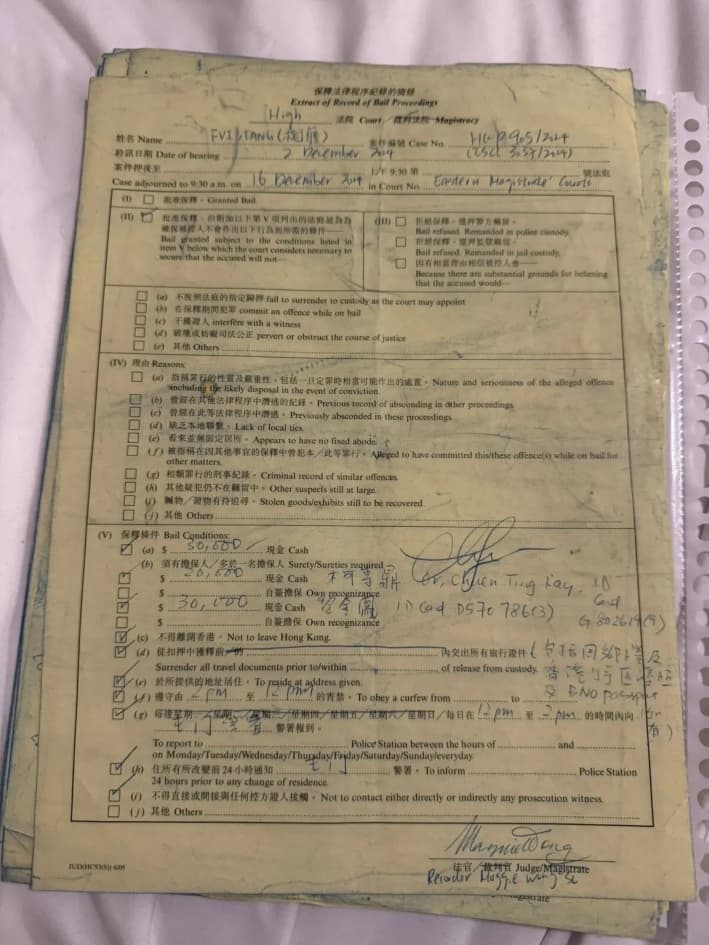 保釋法律程序紀錄的摘錄
Extract of Record of Bail Proceedings
High 法院 Court / 裁判法院 Magistracy
姓名 Name 案件編號 Case No.
聆訊日期 Date of hearing 2 December
案件押後至 上午 9:30 第 號法庭
Case adjourned to 9:30 a.m. on 16 December in Court No. Eastern Magistrates' Courts
(I) 批准保釋。Granted Bail.
(II) 批准保釋，但附加以下第 V 項列出的法庭認為為
確保被控人不會作出以下行為而所需的條件—
Bail granted subject to the conditions listed in
item V below which the court considers necessary to
secure that the accused will not—
(III) 拒絕保釋，還押警方看管。
Bail refused. Remanded in police custody.
拒絕保釋，還押監獄羈留。
Bail refused. Remanded in jail custody.
因有相當理由相信被控人會—
Because there are substantial grounds for believing
that the accused would—
(a) 不按照法庭的指定歸押 fail to surrender to custody as the court may appoint
(b) 在保釋期間犯罪 commit an offence while on bail
(c) 干擾證人 interfere with a witness
(d) 破壞或妨礙司法公正 pervert or obstruct the course of justice
(e) 其他 Others
(IV) 理由 Reasons:
(a) 指稱罪行的性質及嚴重性，包括一旦定罪時相當可能作出的處置。Nature and seriousness of the alleged offence
including the likely disposal in the event of conviction
(b) 曾經在其他法律程序中潛逃的紀錄。Previous record of absconding in other proceedings.
(c) 曾經在此等法律程序中潛逃。Previously absconded in these proceedings.
(d) 缺乏本地聯繫。Lack of local ties.
(e) 看來並無固定居所。Appears to have no fixed abode.
(f) 被指稱在因其他事宜的保釋中曾犯本／此等罪行。Alleged to have committed this/these offence(s) while on bail for
other matters.
(g) 相類罪行的刑事紀錄。Criminal record of similar offences.
(h) 其他疑犯仍不在羈留中。Other suspects still at large.
(i) 贓物／證物有待追尋。Stolen goods/exhibits still to be recovered.
(j) 其他 Others
(V) 保釋條件 Bail Conditions:
(a) $ 30,000 現金 Cash
(b) 須有擔保人／多於一名擔保人 Surety/Sureties required
$ 20,000 現金 Cash
$ 自簽擔保 Own recognizance
$ 30,000 現金 Cash
$ 自簽擔保 Own recognizance
(c) 不得離開香港。Not to leave Hong Kong.
(d) 從扣押中獲釋前 內交出所有旅行證件
Surrender all travel documents prior to/within of release from custody.
(e) 於所提供的地址居住。To reside at address given.
(f) 遵守由 2 pm 至 12 pm 的宵禁。To obey a curfew from to
(g) 每逢星期一／星期二／星期三／星期四／星期五／星期六／星期日／每日在 12 pm 至 2 pm 的時間內向
警署報到。
To report to Police Station between the hours of and
on Monday/Tuesday/Wednesday/Thursday/Friday/Saturday/Sunday/everyday.
(h) 住所有所改變前 24 小時通知 警署。To inform Police Station
24 hours prior to any change of residence.
(i) 不得直接或間接與任何控方證人接觸。Not to contact either directly or indirectly any prosecution witness.
(j) 其他 Others
法官／裁判官 Judge/Magistrate
Recorder Maggie Wong SC